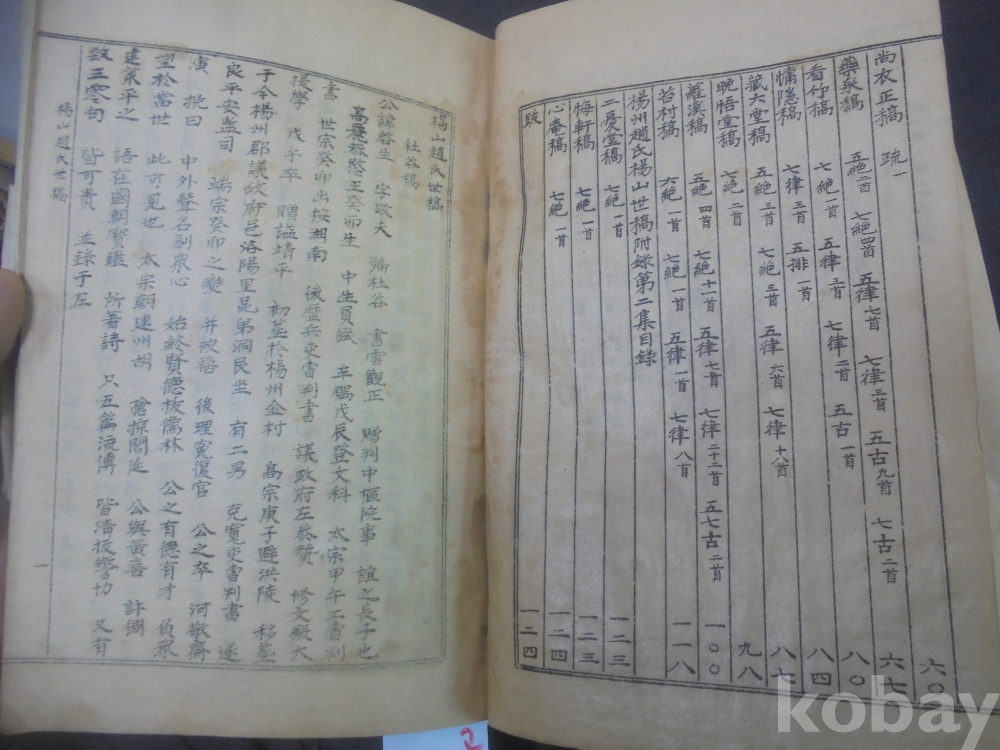 疏一 六〇
尚衣正稿 五絶二首 七絶四首 五律七首 七律三首 五古九首 七古二首 六七
藥泉稿 七絶一首 五律三首 七律二首 五古一首 八〇
看竹稿 七律三首 五排一首 八四
慵隱稿 五絶三首 七絶三首 五律六首 七律十八首 八七
藏六堂稿 七絶二首 九八
晩悟堂稿 五絶四首 七絶十一首 五律七首 七律二十二首 五七古二首 一〇〇
羅溪稿 六絶一首 七絶一首 五律一首 七律八首 一一八
苔村稿
楊州趙氏楊山世稿附錄第二集目錄
二憂堂稿 七絶一首 一二三
梅軒稿 七絶一首 一二三
心庵稿 七絶一首 一二四
跋 一二四
楊山趙氏世稿
社谷稿
公諱啓生 字敬夫 號社谷 書雲觀正 贈判中樞院事 誼之長子也
高麗恭愍王癸卯生 中生員試 辛禑戊辰登文科 太宗甲午工曹判
書 世宗癸卯出按湖南 後歷兵吏曹判書 議政府左參贊 修文殿大
提學 戊午卒 贈謚靖平 初葬於楊州金村 高宗庚子避洪陵 移葬
于今楊州郡議政府邑洛陽里昆弟洞艮坐 有二男 克寬吏曹判書 遂
良平安監司 端宗癸卯之變 并被禍 後理寃復官 公之卒 河敬齋
演 挽曰 中外聲名副衆心 始終賢德拔儒林 公之有德有才 負衆
望於當世 此可見也 太宗朝建州胡 搶掠閭延 公與黃喜 許稠
建策平之 語在國朝寶鑑 所著詩 只五篇流傳 皆清拔警切 又有
数三零句 皆可貴 並錄于左
楊山趙氏世稿 一
2
kobay